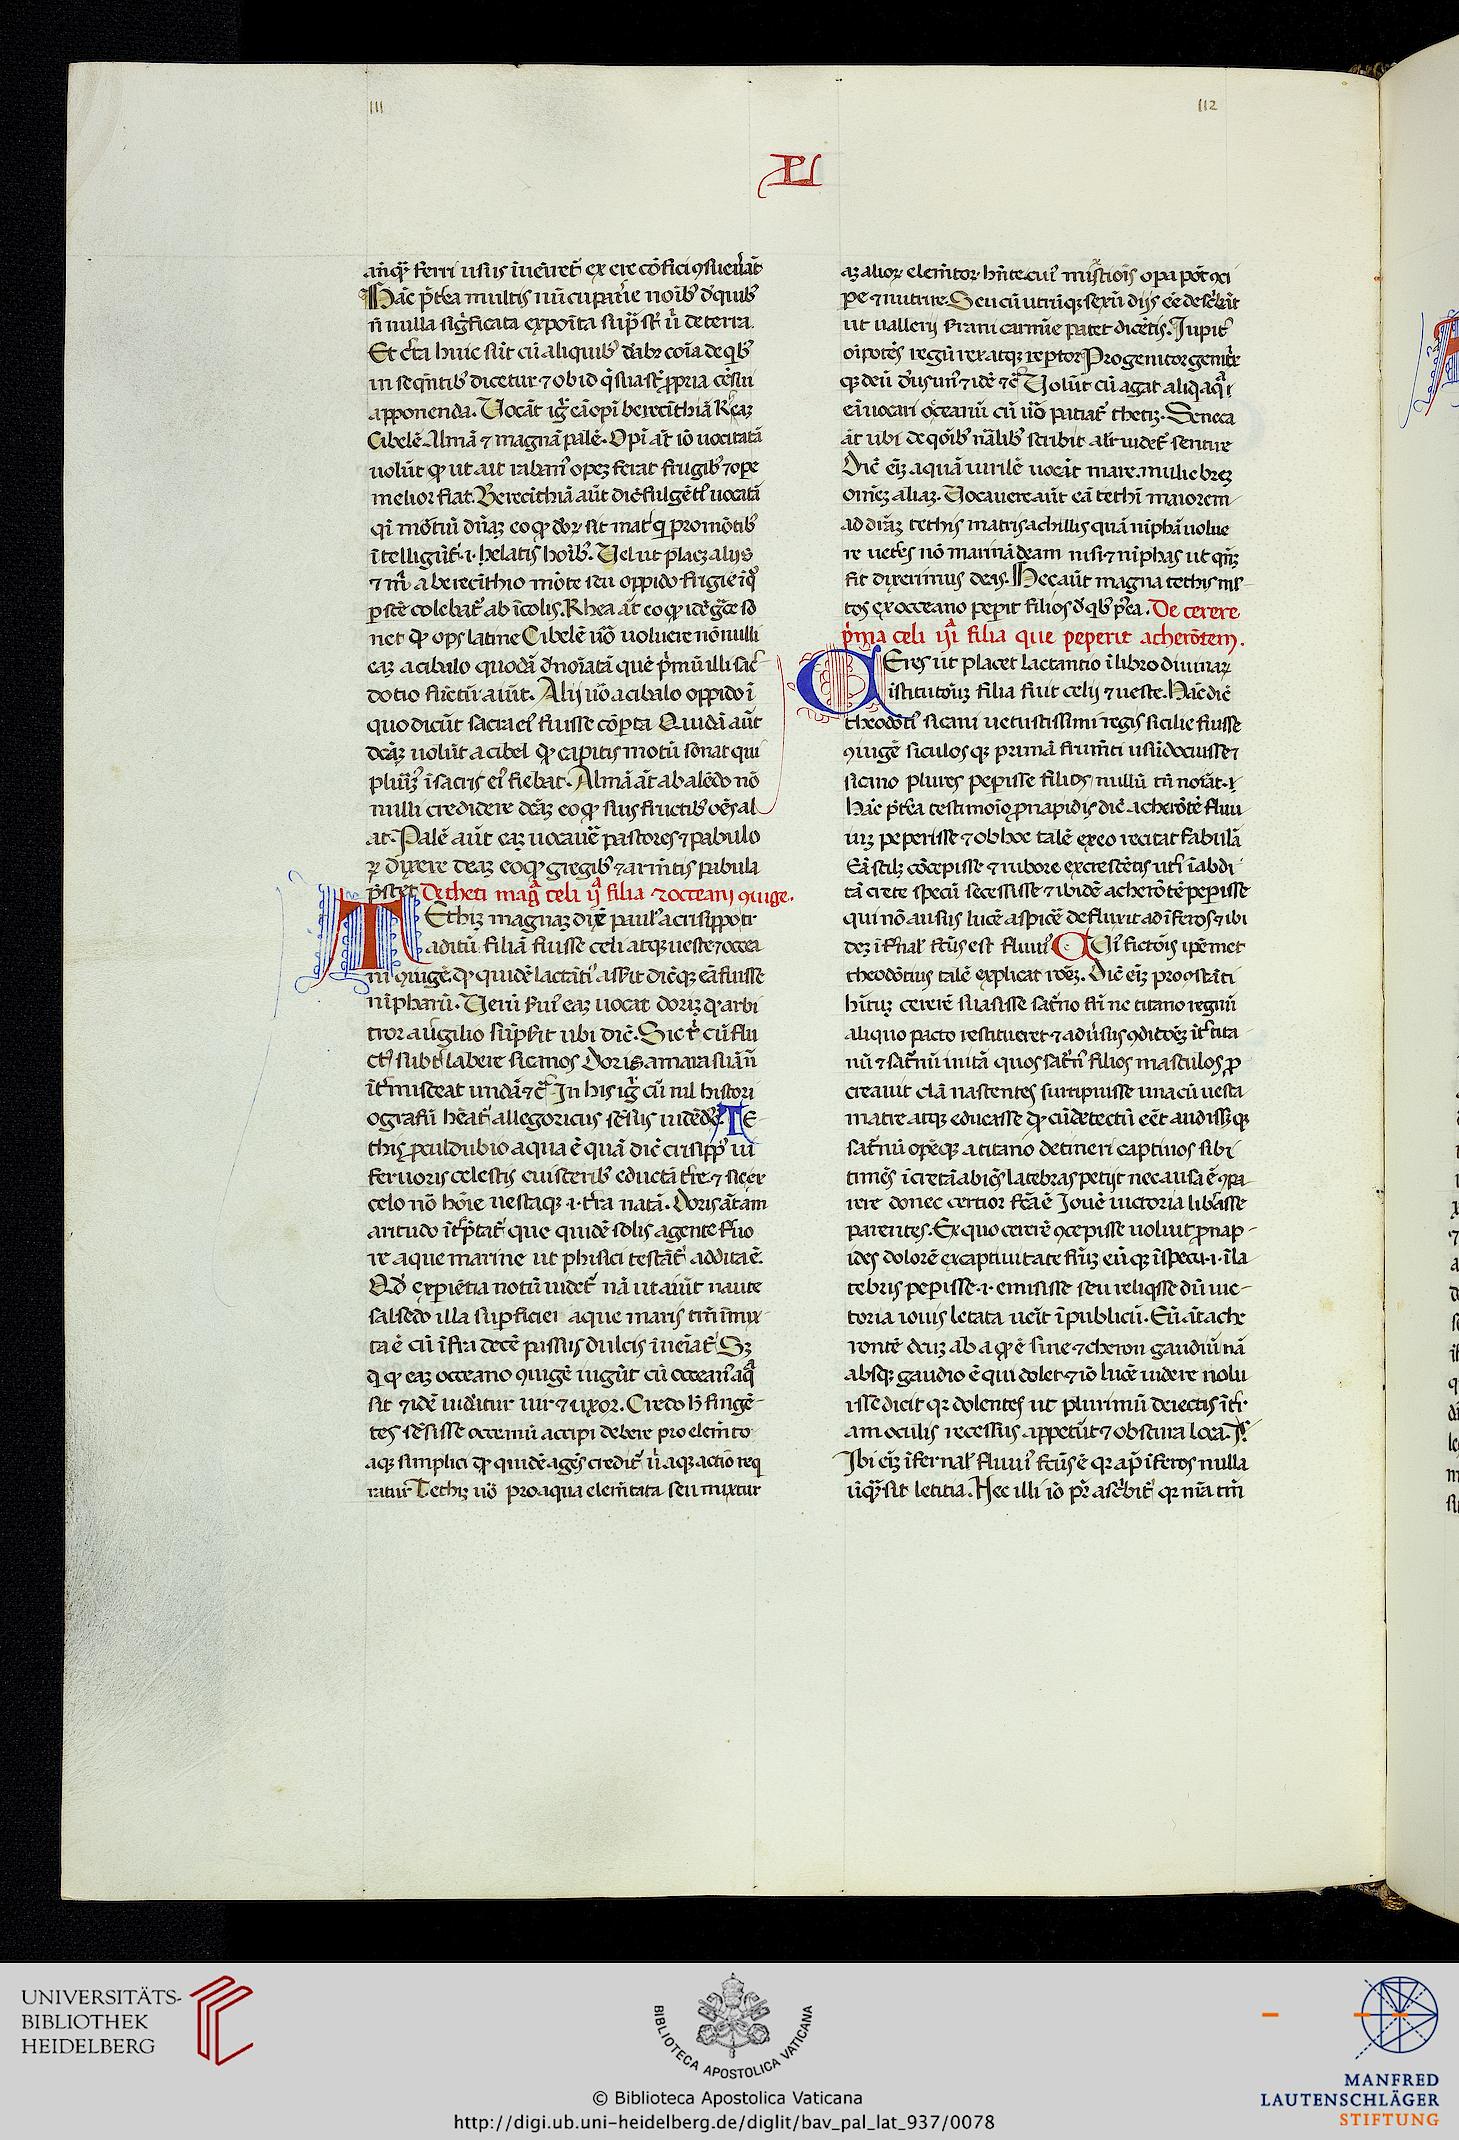 111
112
anq̃ ferri usus inueniret̃ ex ere cõfici ↄsueuerãt
Hãc p̃t̃ea multis nũcupauere noĩb' de quib'
ñ nulla sig̃ficata expoĩta sup̃ sũt ũ de terra
Et c̃ta huic sũt cũ aliquib' deab coĩa de q̃b'
in seq̃ntib' dicetur ⁊ ob id q̃ sua sũt p̃pria cẽsui
apponenda. Uocãt ig̃ eã opĩ berecĩthiã Reaȝ
Cibelẽ Almã ⁊ magnã palẽ. Opĩ aũt iõ uocitatã
uolũt ꝙ ut ait raban' opeȝ ferat frugib' ⁊ ope
melior fiat. Berecĩthiã aũt dic̃ fulgẽt' uocatã
qĩ mõtiũ dñaȝ eo ꝙ deoꝝ sit mat' q̃ p mõtib'
ĩtelligũt'.i. helatis hoĩb'. Uel ut placȝ alijs
⁊ m̃ a berecĩthio mõte seu oppido frigie ĩ q̃
p̃stẽ colebat̃ ab ĩcolis. Rhea aũt eo ꝙ idẽ g̃ce so
net ꝙ ops latine Cibelẽ uõ uoluere nõnulli
eaȝ a cibulo quodã denoĩatã quẽ p̃mũ illi sac̃
dotio fũctũ aiũt. Alij uõ a cibalo oppido ĩ
quo dicũt sacra ei' fuisse cõp̃ta Quidã aũt
deaȝ uolũt a cibel ꝙ capitis motũ sonat qui
plurimȝ ĩ sacris ei' fiebat. Almã aũt ab alẽdo nõ
nulli credidere deaȝ eo ꝙ suis fructib' oẽs al
at. Palẽ aũt eaȝ uocauẽ pastores ⁊ pabulo
ꝝ dixere deaȝ eo ꝙ gregib' ⁊ armẽtis pabula
p̃stet De theti mag̃ celi ijᵃ filia ⁊ occeani ↄiuge.
Ethiȝ magnaȝ dixẽ paul' a crisippo tr
aditũ filiã fuisse celi atque ueste ⁊ occea
ni ↄiugẽ ꝙ quidẽ lactãti' ass̃it dicẽq̃ eã fuisse
nĩpharũ. Uerũ seru' eaȝ uocat doriȝ ꝙ arbi
tror a uirgilio sũp̃sit ubi dic̃. Sic t' cũ flu
ct' subt' labere sicanos Doris amara suã ñ
ĩt'misceat undã ⁊c̃ In his ig̃ cũ nil histori
ografũ heãt' allegoricus sẽsus uidẽd'. Te
this p̃culdubio aqua ẽ quã dic̃ crisipp' ui
feruoris celestis euiscerib' eductã t're. ⁊ sic ex
celo nõ hoĩe uestaq̃ .i. t'ra natã. Doris aũt am
aritudo ĩt'p̃tat' que quidẽ solis agente fuo
re aque marine ut phisici testãt' addita ẽ.
Qd' experiẽtia notũ uidet' nã ut aiũt naute
salsedo illa superficiei aque maris tm̃ ĩmix
ta ẽ cũ ĩfra decẽ passus dulcis ĩueĩat' Sȝ
q̃ ꝙ eaȝ occeano ↄiugẽ iugũt cũ occean' aq̃
sit ⁊ idẽ uideatur uir ⁊ uxor. Credo h̃ fingẽ
tes sẽsisse occeanũ accipi debere pro elemẽto
aq̃ simplici ꝙ quidẽ agẽs credit' ũ aq̃ actio req
ratur Tethiȝ uõ pro aqua elemẽtata seu mixtur
aȝ alioꝝ elemẽtoꝝ hñte cui' mixtiõis opa põt ↄci
pe ⁊ nutrire. Seu cũ utrũq̃ sexũ dijs eẽ descbãt
ut uallerij sorani carmie patet dicẽtis. Iupit'
oĩpotẽs regũ rex atq̃ reptor Progenitor genitrix
q̃ deũ d'us un' ⁊ idẽ ⁊c̃ Uolũt cũ agat aliq̃ aq̃ ĩ
eã uocari occeanũ cũ uõ patiat' thetiȝ. Seneca
aũt ubi de q̃oĩb' nãlib' scribit alit' uidet' sentire
Dic̃ eĩȝ aquã uirilẽ uocãt mare. muliebreȝ
omẽȝ aliaȝ. Uocauere aũt eã tethĩ maiorem
ad dr̃aȝ tethis matris achillis quã nĩphã uolue
re uet'es nõ marinã deam nisi ⁊ nĩphas ut q̃ñȝ
fit dixerimus deas. Hec aũt magna tethis ml'
tos ex occeano pepit filios de qb' p̃ea. De cerere
p̃ma celi iijᵃ filia que peperit acherõtem.
Eres ut placet lactantio ĩ libro diuinaꝝ
istitutionȝ filia fuit celij ⁊ ueste. Hãc dic̃
theodõti' sicani uetustissimi regis sicilie fuisse
ↄiugẽ siculosq̃ primã frumẽti usũ docuisse ⁊
sicano plures pepisse filios nullũ tñ noĩat. ⁊
Hãc p̃t̃ea testimoĩo pronapidis dic̃ acherõtẽ fluu
iuȝ peperisse ⁊ ob hoc talẽ ex eo recitat fabulã
Eã scilȝ cõcepisse ⁊ rubore excrescẽtis ut'i ĩ abdi
tã crete specũ secessisse ⁊ ibidẽ acherõtẽ pepisse
qui nõ ausus lucẽ aspicẽ defluxit ad ĩferos ⁊ ibi
deȝ ĩf'nal' fc̃us est fluui' Cui' fictõis ipẽmet
theodõtius talẽ explicat rõeȝ. Dic̃ eĩȝ pro ↄstãti
hr̃ituȝ cererẽ suasisse sat'no fr̃i ne titano regnũ
aliquo pacto restitueret ⁊ aduersus ↄditõeȝ ĩt' tita
nũ ⁊ sat'nũ initã quos sat'n' filios masculos p
creauit clã nascentes surripuisse una cũ uesta
matre atque educasse ꝙ cũ detectũ eẽt audissȝq̃
sat'nũ opẽq̃ a titano detineri captiuos sibi
timẽs ĩ cretã abiẽs latebras petijt nec ausa ẽ ↄpa
rere donec certior fc̃a ẽ Iouẽ uictoria lib'asse
parentes. Ex quo cererẽ ↄcepisse uoluit pronap
ides dolorẽ ex captiuitate fr̃uȝ euq̃ ĩ specu .i. ĩ la
tebris pepisse .i. emisisse seu reliqsse dũ uic
toria iouis letata ueĩt ĩ publicũ. Eũ aũt ache
rontẽ deuȝ ab a q̃ ẽ sine ⁊ cheron gaudiũ nã
absq̃ gaudio ẽ qui dolet ⁊ iõ lucẽ uidere nolu
isse dicit qꝛ dolentes ut plurimũ deiectis ĩt'r
am oculis recessus appetũt ⁊ obscura loca.
Ibi eĩȝ ĩfernal' fluui' fc̃us ẽ qꝛ ap' ĩferos nulla
ũq̃ sit letitia. Hec illi iõ p̃r asc̃bit' qꝛ nĩa tm̃
UNIVERSITÄTS-
BIBLIOTHEK
HEIDELBERG
BIBLIOTECA APOSTOLICA VATICANA
© Biblioteca Apostolica Vaticana
http://digi.ub.uni-heidelberg.de/diglit/bav_pal_lat_937/0078
MANFRED
LAUTENSCHLÄGER
STIFTUNG